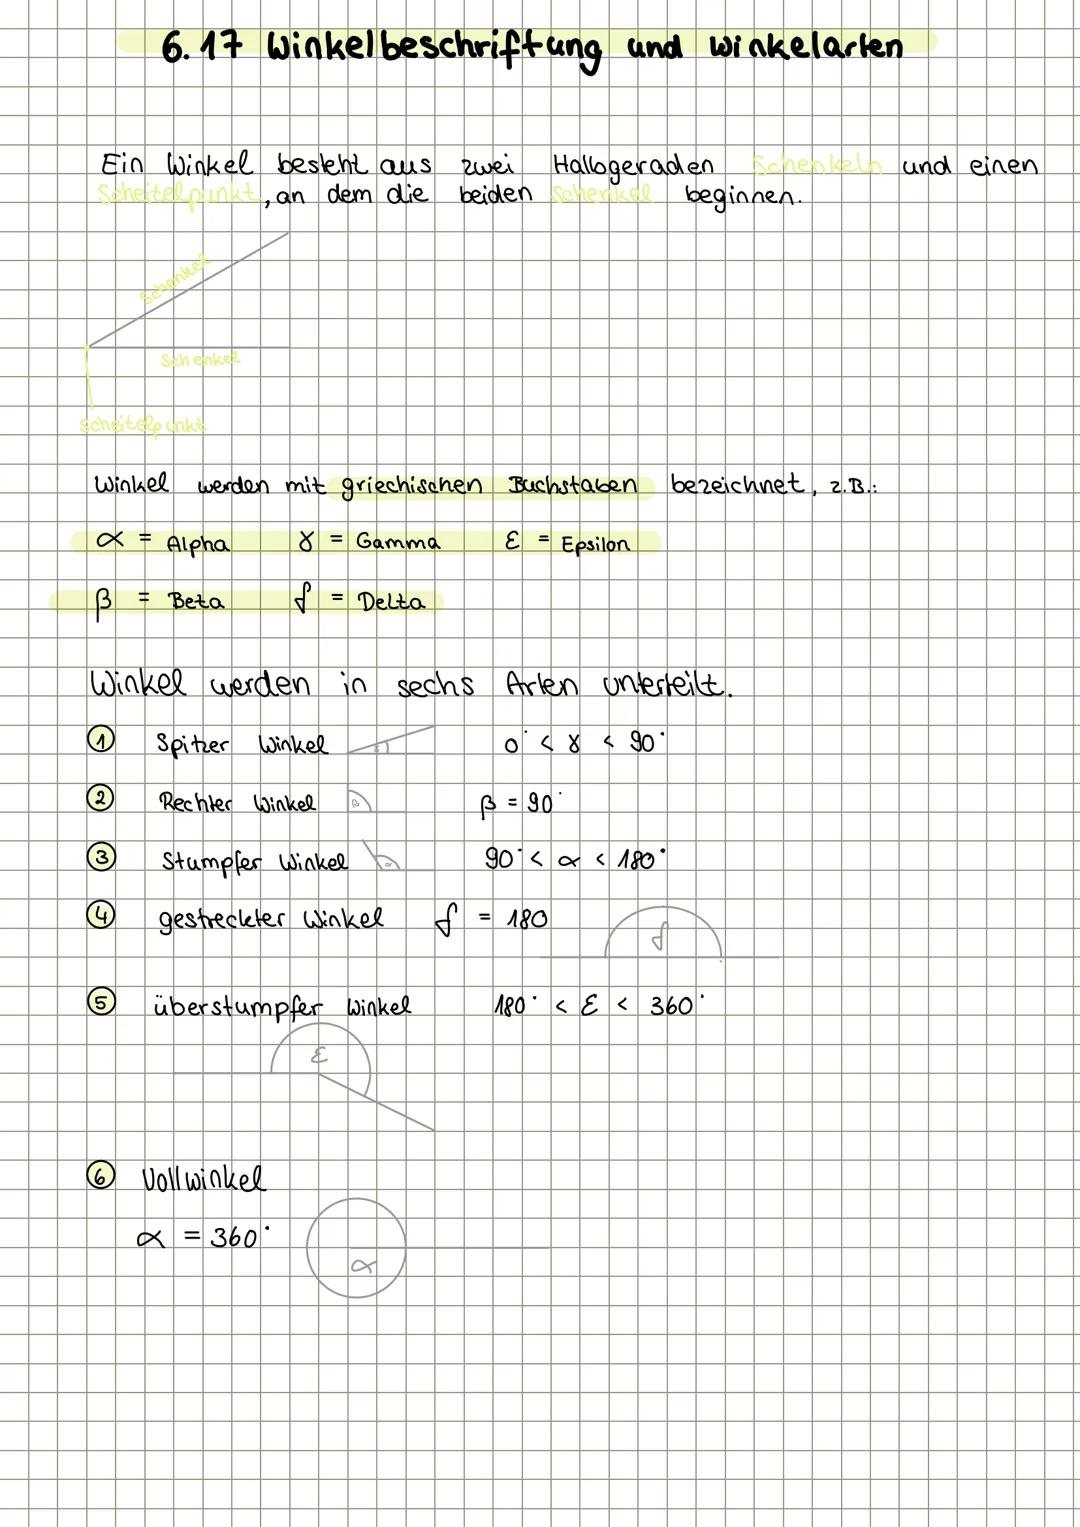 6.17 Winkelbeschriftung und Winkelarten
Ein Winkel besteht aus zwei Hallogeraden Schenkeln und einen
Scheitelpunkt, an dem die beiden Schenkel beginnen.
Schenkel
Schenkel
Scheitelpunkt
Winkel werden mit griechischen Buchstaben bezeichnet, z.B.:
α = Alpha γ = Gamma ε = Epsilon
β = Beta δ = Delta
Winkel werden in sechs Arten unterteilt.
① Spitzer Winkel γ 0° < γ < 90°
② Rechter Winkel β β = 90°
③ Stumpfer Winkel α 90° < α < 180°
④ gestreckter Winkel δ = 180 δ
⑤ überstumpfer Winkel 180° < ε < 360°
ε
⑥ Vollwinkel
α = 360°
α